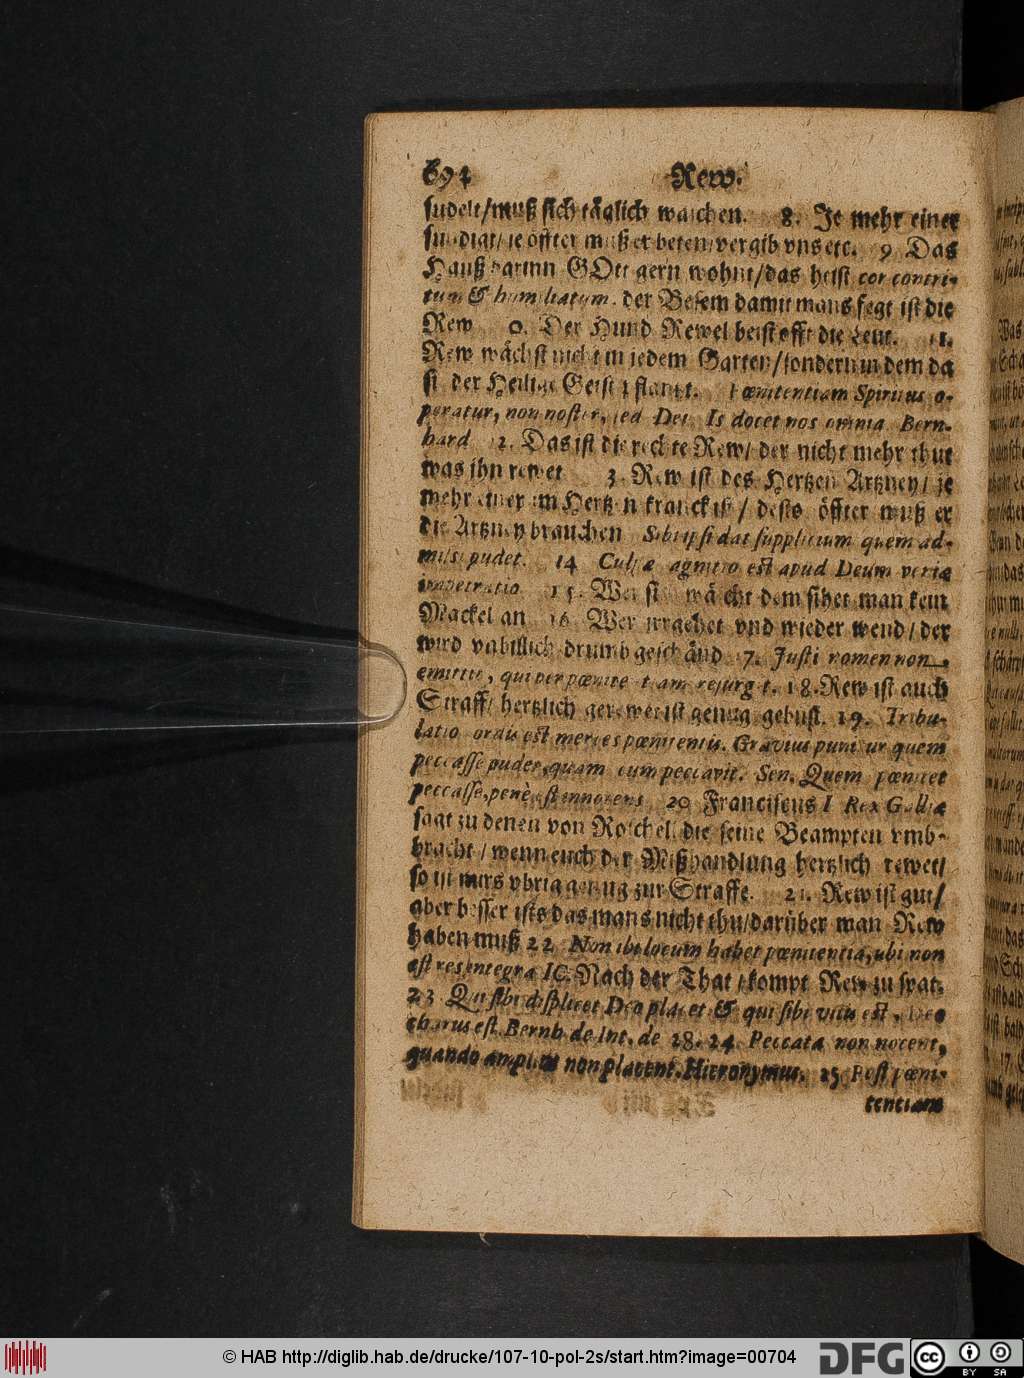 694 Rew.
sudelt/muß sich täglich waschen. 8. Je mehr einer
sündigt/je öffter muß er beten/vergib vns etc. 9 Das
Hauß darinn GOtt gern wohnt/das heist cor contri-
tum & humiliatum. der Besem damit mans fegt ist die
Rew Der Hund Rewel beist offt die Leut. 11.
Rew wächst nicht in jedem Garten/sondern in dem da
sie der Heilige Geist pflantzt. Pœnitentiam Spiritus o-
peratur, non noster, sed Dei. Is docet nos omnia Bern-
hard 12. Das ist die rechte Rew/ der nicht mehr thut
was ihn rewet 13. Rew ist des Hertzen Artzney/ je
mehr einer im Hertzen kranck ist / desto öffter muß er
die Artzney brauchen Sibi ipsi dat supplicium quem ad-
missi pudet. 14 Culpæ agnitio est apud Deum veniæ
impetratio 15. Wer sich wäscht dem sihet man kein
Mackel an 16. Wer vrgehet vnd wieder wend/ der
wird vnbillich drumb geschänd 17. Justi nomen non
emittit, qui per pœnitentiam resurgit. 18. Rew ist auch
Straff/ hertzlich gerewet ist genug gebust. 19. Tribu-
latio cordis est merces pœnitentis. Gravius punitur quem
peccasse pudet, quam cum peccavit. Sen. Quem pœnitet
peccasse, penè est innocens 20 Franciscus I Rex Galliæ
sagt zu denen von Roschell die seine Beampten vmb-
bracht / wenn euch der Mißhandlung hertzlich rewet/
so ist mirs vbrig genug zur Straffe. 21. Rew ist gut/
aber besser ists das mans nicht thu/darüber man Rew
haben muß 22 Non ibi locum habet pœnitentia, ubi non
est res integra IC. Nach der That kompt Rew zu spat.
23 Qui sibi displicet Deo placet & qui sibi vilis est, Deo
charus est. Bernh. de Int. de 18. 24. Peccata non nocent,
quando amplius non placent. Hieronymus. 25 Post pœni-
tentiam
© HAB http://diglib.hab.de/drucke/107-10-pol-2s/start.htm?image=00704
DFG
cc BY SA